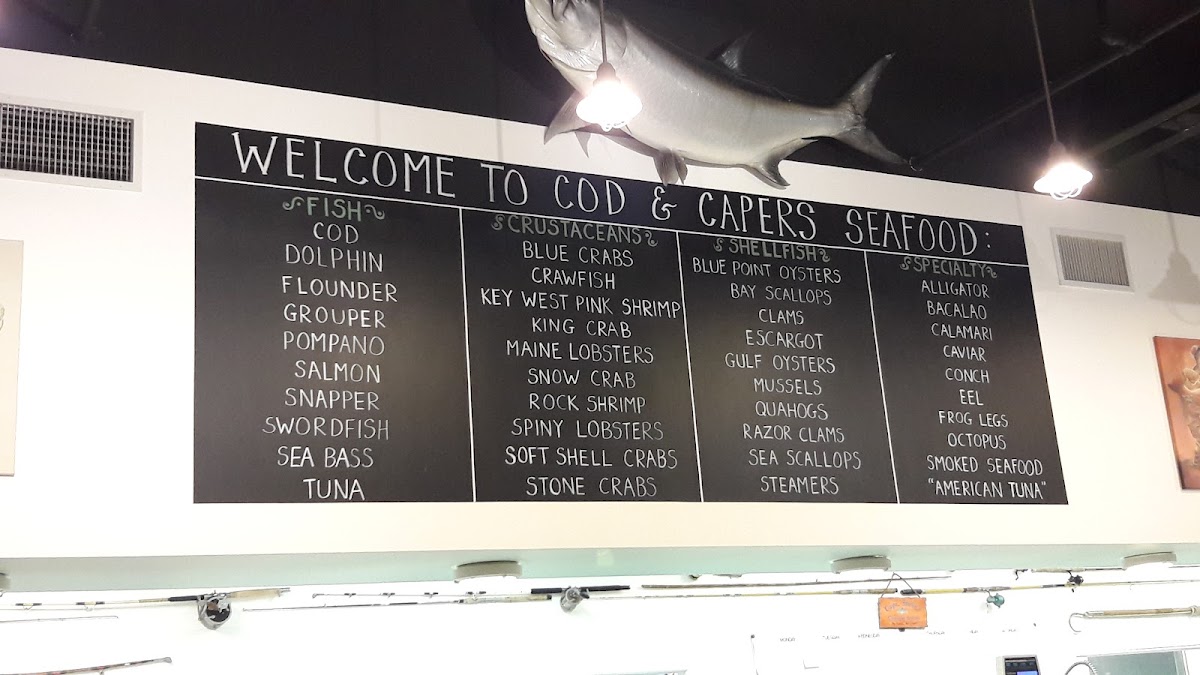 WELCOME TO COD & CAPERS SEAFOOD:
FISH
COD
DOLPHIN
FLOUNDER
GROUPER
POMPANO
SALMON
SNAPPER
SWORDFISH
SEA BASS
TUNA
CRUSTACEANS
BLUE CRABS
CRAWFISH
KEY WEST PINK SHRIMP
KING CRAB
MAINE LOBSTERS
SNOW CRAB
ROCK SHRIMP
SPINY LOBSTERS
SOFT SHELL CRABS
STONE CRABS
SHELLFISH
BLUE POINT OYSTERS
BAY SCALLOPS
CLAMS
ESCARGOT
GULF OYSTERS
MUSSELS
QUAHOGS
RAZOR CLAMS
SEA SCALLOPS
STEAMERS
SPECIALTY
ALLIGATOR
BACALAO
CALAMARI
CAVIAR
CONCH
EEL
FROG LEGS
OCTOPUS
SMOKED SEAFOOD
"AMERICAN TUNA"
MONDAY TUESDAY WEDNESDAY THURSDAY